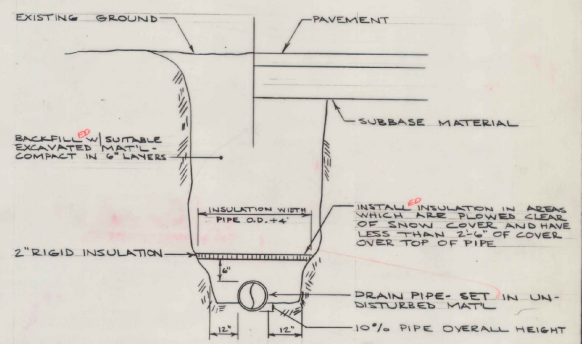 EXISTING GROUND
PAVEMENT
SUBBASE MATERIAL
BACKFILLED W/ SUITABLE
EXCAVATED MAT'L -
COMPACT IN 6" LAYERS
INSULATION WIDTH
PIPE O.D. + 4'
INSTALLED INSULATION IN AREAS
WHICH ARE PLOWED CLEAR
OF SNOW COVER AND HAVE
LESS THAN 2'-6" OF COVER
OVER TOP OF PIPE
2" RIGID INSULATION
6"
DRAIN PIPE - SET IN UN-
DISTURBED MAT'L
12"
12"
10% PIPE OVERALL HEIGHT